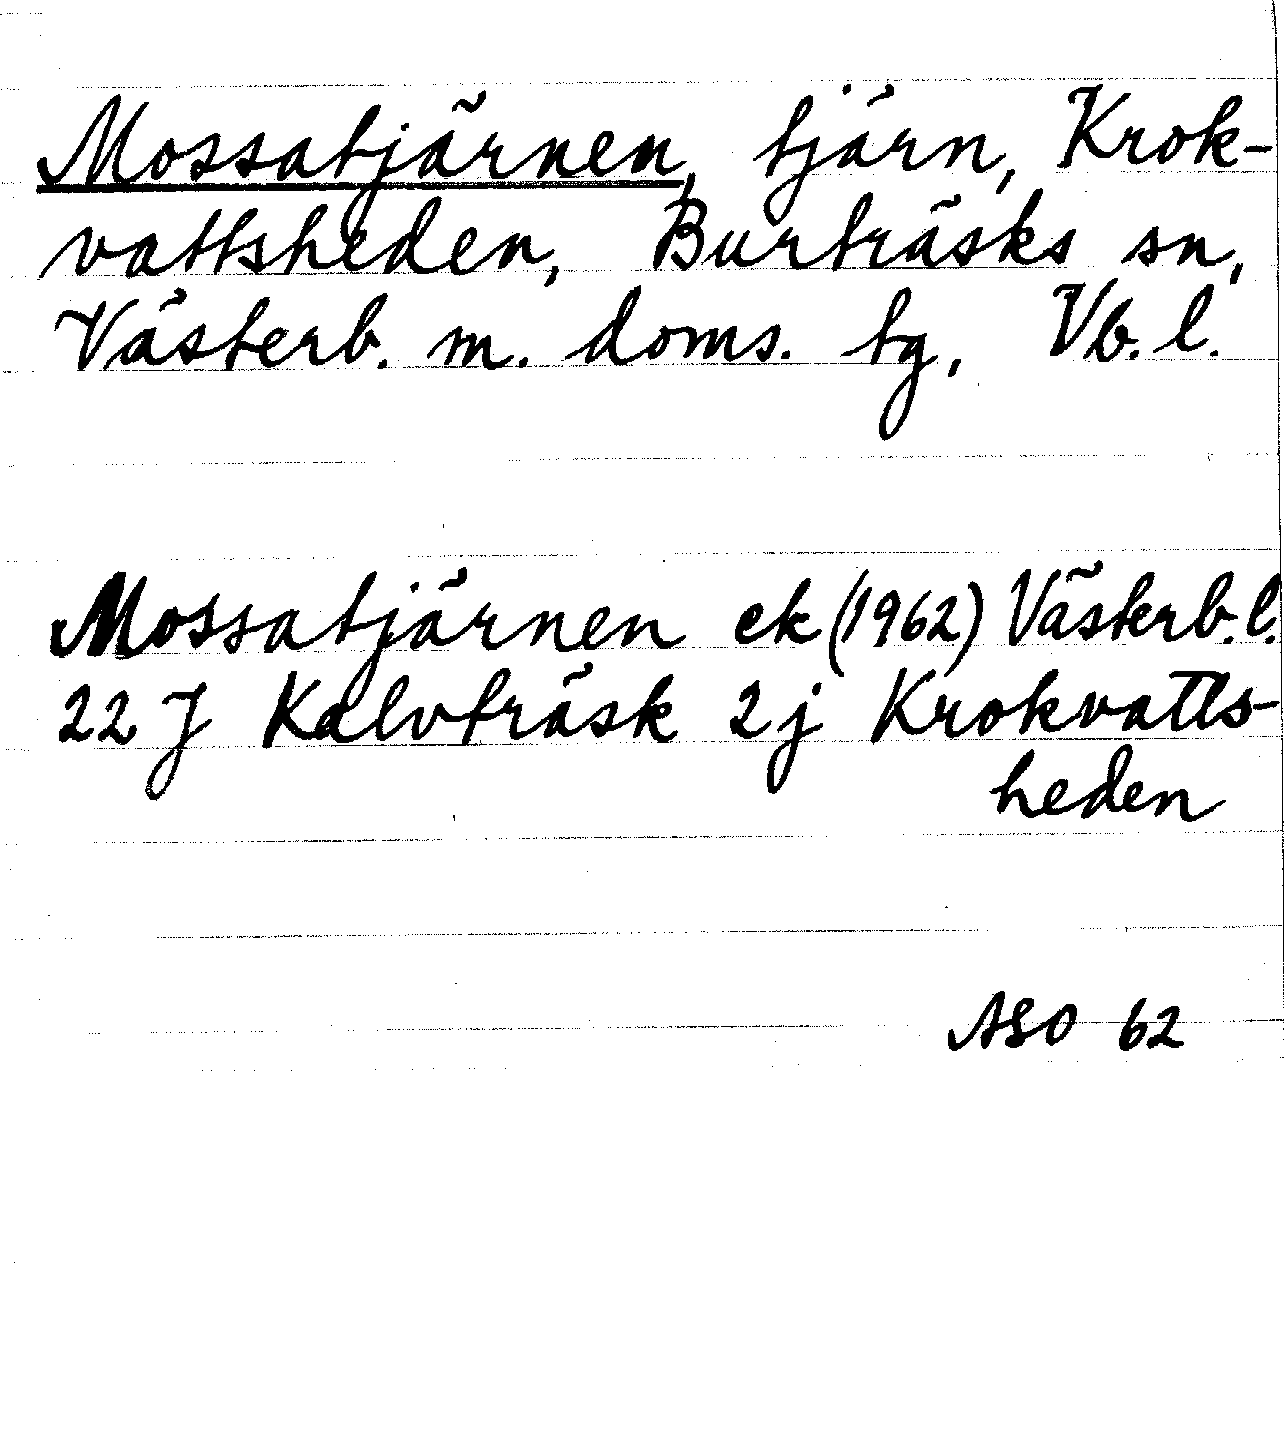 Mossatjärnen, tjärn, Krok-
vattsheden, Burträsks sn,
Västerb. m. doms. tg, Vb. l.
Mossatjärnen ek (1962) Västerb. l.
22 J Kalvträsk 2 j Krokvatts-
heden
ASO 62